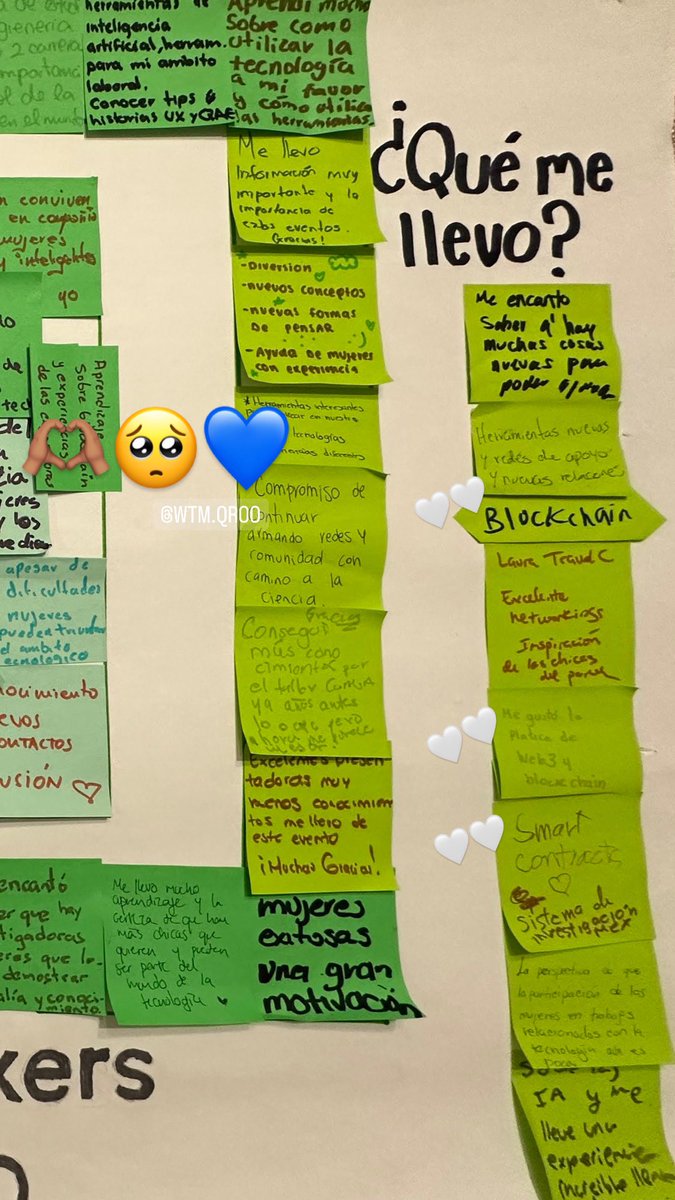 herramientas de
inteligencia
artificial, herram.
para mi ambito
laboral.
Conocer tips &
historias UX y QAE
Aprendí mucho
Sobre como
utilizar la
tecnología
a mi favor
y cómo utiliza
las herramientas.
¿Qué me
llevo?
Me llevo
Información muy
importante y la
importancia de
estos eventos.
Gracias!
-DIVERSION
-nuevos conceptos
-nuevas formas
DE PENSAR
-Ayuda De mujeres
con experiencia
* Herramientas interesantes
en nuestro
tecnologías
diferentes
Compromiso de
continuar
armando redes y
comunidad con
camino a la
ciencia.
Gracias
Conseguí
más cono
cimientos por
el taller
ya años antes
Excelentes presen
tadoras muy
buenos conocimien
tos me llevo de
este evento
¡Muchas Gracias!
mujeres
exitosas
una gran
motivación
Me encanto
Saber q' hay
muchas cosas
nuevas para
poder
Herramientas nuevas
y redes de apoyo
y nuevas relaciones
Blockchain
Laura Traud C
Excelente
networkings
Inspiración
de las chicas
del panel
Me gustó la
platica de
Web3 y
blockchain
Smart
contracts
Sistema de
investigación
La perspectiva de que
la participación de las
mujeres en trabajos
relacionados con la
tecnología aun es
poca
IA y me
lleve una
experiencia
increible
n conviven
en
mujeres
y inteligentes
yo
Aprendizaje
Sobre
y experiencias
de las
apesar de
dificultades
mujeres
pueden triunfar
el ambito
tecnologico
nocimiento
evos
ontactos
usión
encantó
er que hay
tigadoras
demostrar
alía y conoci-
miento.
Me llevo mucho
aprendizaje y la
certeza de que hay
más chicas que
quieren y pueden
ser parte del
mundo de la
tecnología
kers
@WTM.QROO